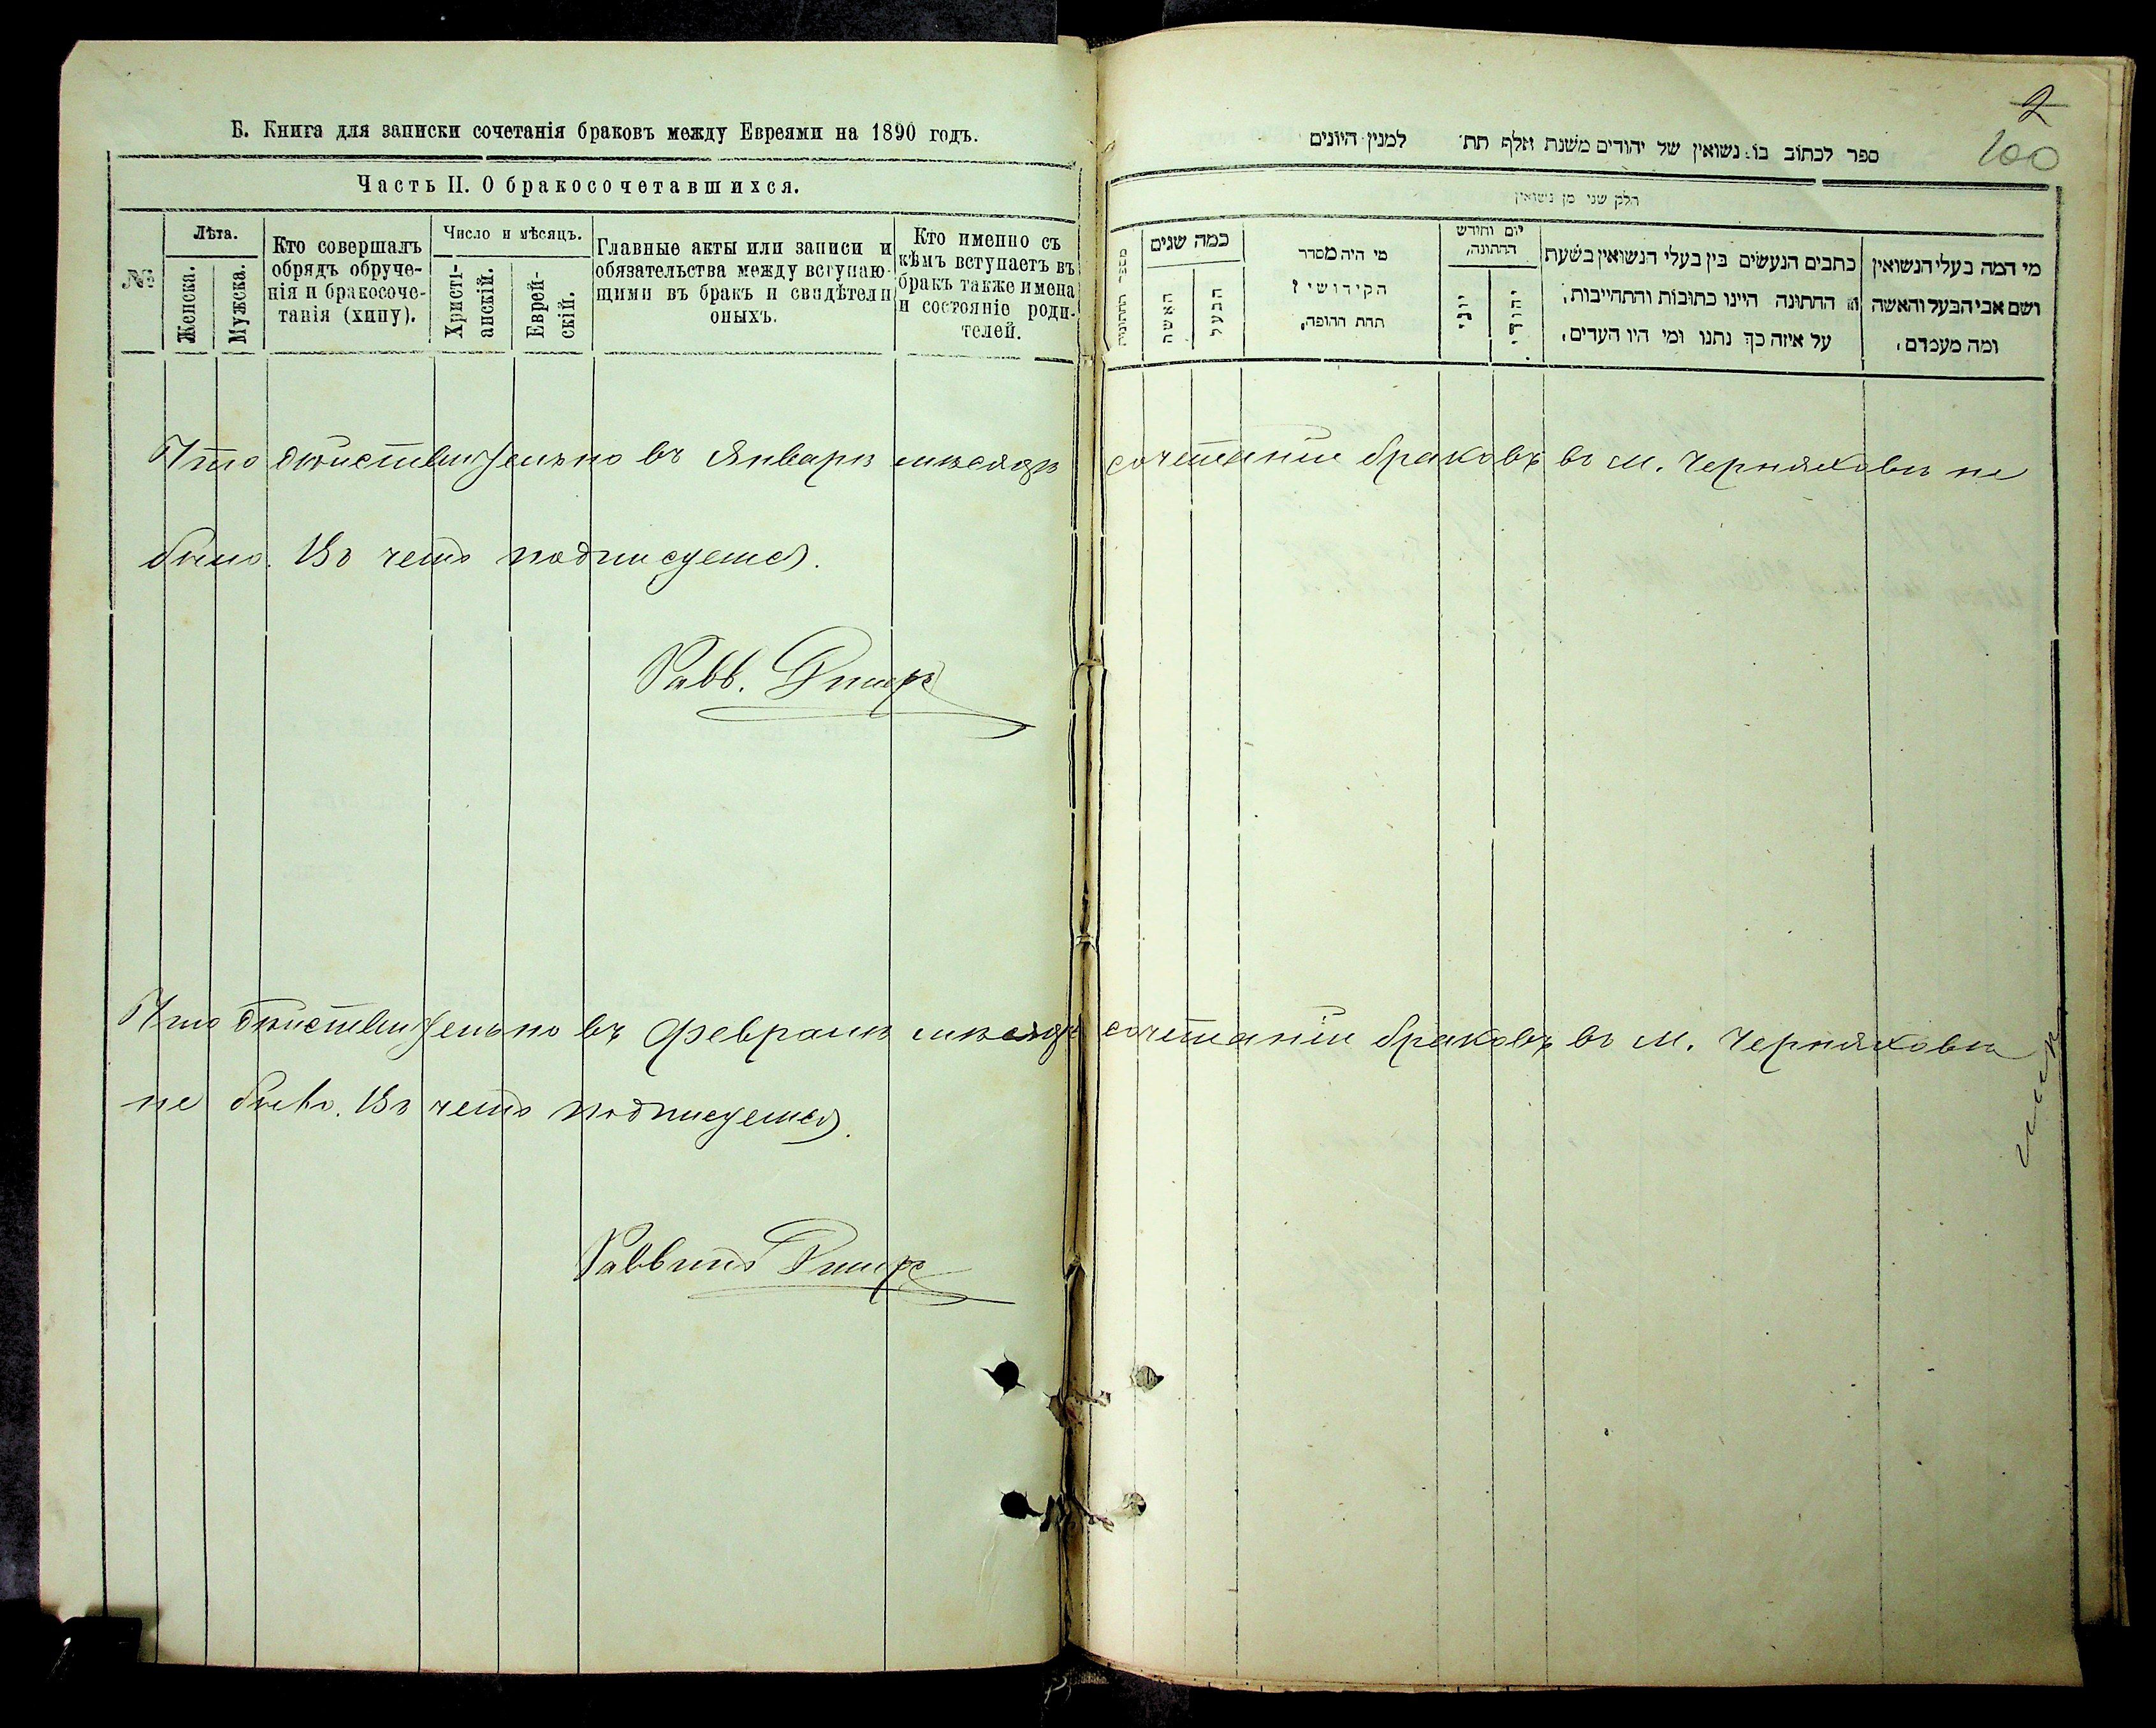 Б. Книга для записки сочетанія браковъ между Евреями на 1890 годъ.
Часть II. О бракосочетавшихся.
№
Лѣта.
Женска.
Мужска.
Кто совершалъ
обрядъ обруче-
нія и бракосоче-
танія (хипу).
Число и мѣсяцъ.
Христі-
анскій.
Еврей-
скій.
Главные акты или записи и
обязательства между вступаю-
щими въ бракъ и свидѣтели
оныхъ.
Кто именно съ
кѣмъ вступаетъ въ
бракъ также имена
и состояніе роди-
телей.
Что дѣйствительно въ Январѣ мѣсяцѣ сочетаніи браковъ въ м. Черняховѣ не
было. Въ чемъ подписуемся.
Равв.
Что дѣйствительно въ Февралѣ мѣсяцѣ сочетаніи браковъ въ м. Черняховѣ
не было. Въ чемъ подписуемся.
Раввинъ
2
100
ספר לכתוב בו נשואין של יהודים משנת אלף תת למנין היונים
חלק שני מן נשואין
מספר החתונה
כמה שנים
האשה
הבעל
מי היה מסדר
הקידושין
תחת החופה,
יום וחודש
החתונה,
יוני
יהודי
כתבים הנעשים בין בעלי הנשואין בשעת
החתונה היינו כתובות והתחייבות,
על איזה כך נתנו ומי היו העדים,
מי המה בעלי הנשואין
ושם אבי הבעל והאשה
ומה מעמדם,